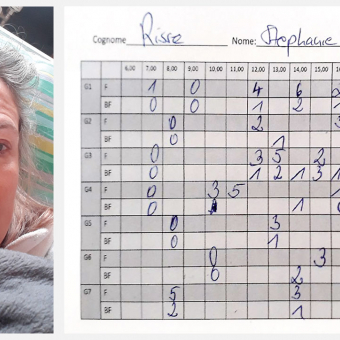 Cognome Risse Nome: Stephanie
6,00 7,00 8,00 9,00 10,00 11,00 12,00 13,00 14,00 15,00
G1 F 1 0 4 6
BF 0 0 1 2 1
G2 F 0 2
BF 0 1
G3 F 0 3 5 2
BF 0 1 2 1 3 1
G4 F 0 3 5
BF 0 1
G5 F 0 3
BF 0 1
G6 F 0 3
BF 0 2
G7 F 5 3
BF 2 1